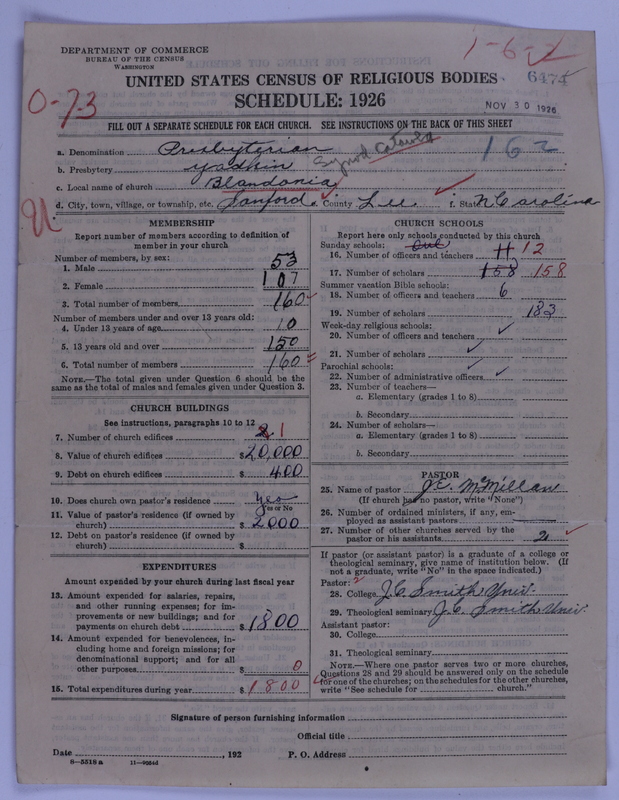 DEPARTMENT OF COMMERCE
BUREAU OF THE CENSUS
WASHINGTON
1-6-2
UNITED STATES CENSUS OF RELIGIOUS BODIES
6474
SCHEDULE: 1926
NOV 30 1926
0-73
FILL OUT A SEPARATE SCHEDULE FOR EACH CHURCH. SEE INSTRUCTIONS ON THE BACK OF THIS SHEET
a. Denomination Presbyterian
162
b. Presbytery Yadkin Synod Catawba
c. Local name of church Blandonia
d. City, town, village, or township, etc. Sanford. e. County Lee f. State N. Carolina
MEMBERSHIP
Report number of members according to definition of
member in your church
Number of members, by sex:
1. Male 53
2. Female 107
3. Total number of members 160
Number of members under and over 13 years old:
4. Under 13 years of age 10
5. 13 years old and over 150
6. Total number of members 160
NOTE.—The total given under Question 6 should be the
same as the total of males and females given under Question 3.
CHURCH BUILDINGS
See instructions, paragraphs 10 to 12
7. Number of church edifices 2 1
8. Value of church edifices $20,000
9. Debt on church edifices $400
10. Does church own pastor's residence yes
Yes or No
11. Value of pastor's residence (if owned by
church) $2000
12. Debt on pastor's residence (if owned by
church) $
EXPENDITURES
Amount expended by your church during last fiscal year
13. Amount expended for salaries, repairs,
and other running expenses; for im-
provements or new buildings; and for
payments on church debt $1800
14. Amount expended for benevolences, in-
cluding home and foreign missions; for
denominational support; and for all
other purposes $0
15. Total expenditures during year $1800
CHURCH SCHOOLS
Report here only schools conducted by this church
Sunday schools:
16. Number of officers and teachers 11 12
17. Number of scholars 158 158
Summer vacation Bible schools:
18. Number of officers and teachers 6
19. Number of scholars 183
Week-day religious schools:
20. Number of officers and teachers
21. Number of scholars
Parochial schools:
22. Number of administrative officers
23. Number of teachers—
a. Elementary (grades 1 to 8)
b. Secondary
24. Number of scholars—
a. Elementary (grades 1 to 8)
b. Secondary
PASTOR
25. Name of pastor J.C. McMillan
(If church has no pastor, write "None")
26. Number of ordained ministers, if any, em-
ployed as assistant pastors
27. Number of other churches served by the
pastor or his assistants 2
If pastor (or assistant pastor) is a graduate of a college or
theological seminary, give name of institution below. (If
not a graduate, write "No" in the space indicated.)
Pastor: 2
28. College J.C. Smith Univ.
29. Theological seminary J.C. Smith Univ.
Assistant pastor:
30. College
31. Theological seminary
NOTE.—Where one pastor serves two or more churches,
Questions 28 and 29 should be answered only on the schedule
for one of the churches; on the schedules for the other churches,
write "See schedule for church."
Signature of person furnishing information
Official title
Date , 192 P. O. Address
8—5518 a 11—9054d